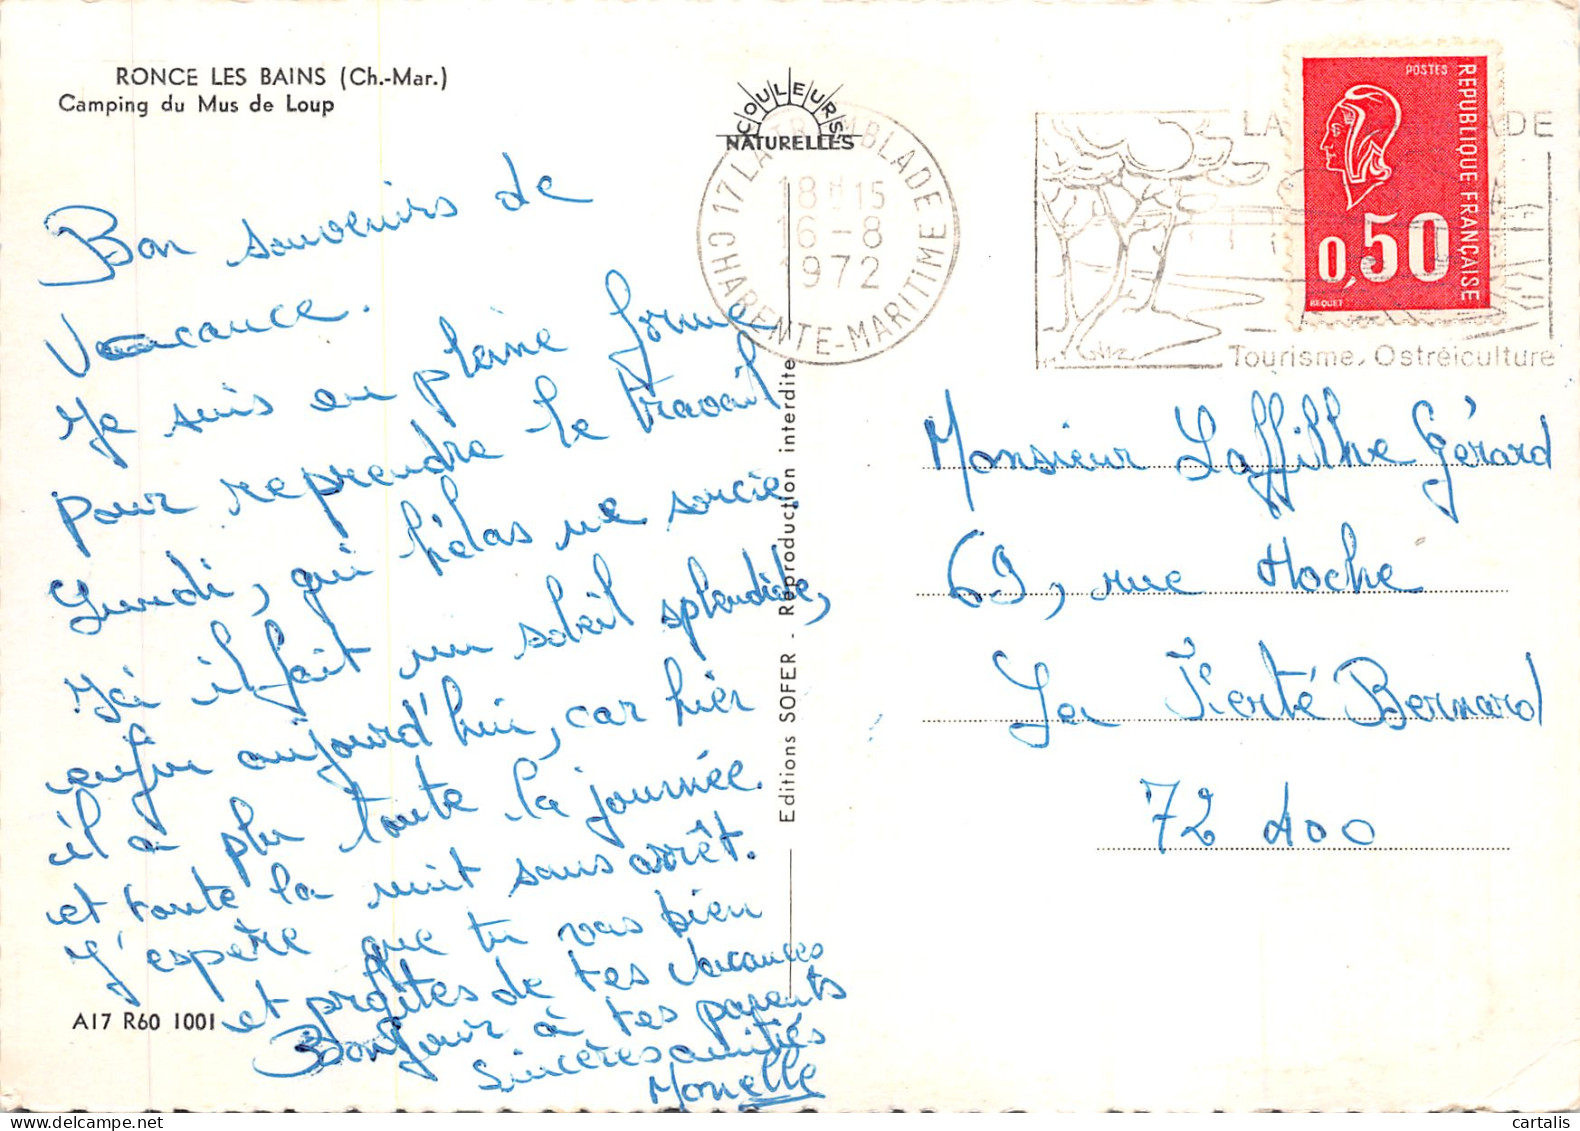 RONCE LES BAINS (Ch.-Mar.)
Camping du Mus de Loup
COULEURS
NATURELLES
17 LA TREMBLADE
18H15
16-8
1972
CHARENTE-MARITIME
LA TREMBLADE
Tourisme, Ostréiculture
POSTES
REPUBLIQUE FRANÇAISE
0,50
BEQUET
Bon souvenirs de
Vacance.
Je suis en pleine forme
pour reprendre le travail
Lundi, qui hélas me soucie.
Ici il fait un soleil splendide,
enfin aujourd'hui, car hier
il a plu toute la journée
et toute la nuit sans arrêt.
J'espère que tu vas bien
et profites de tes vacances
Bonjour à tes parents
Sincères amitiés
Monelle
A17 R60 1001
Editions SOFER - Reproduction interdite
Monsieur Laffilhe Gérard
69, rue Hoche
La Fierté Bernard
72 400
cartalis